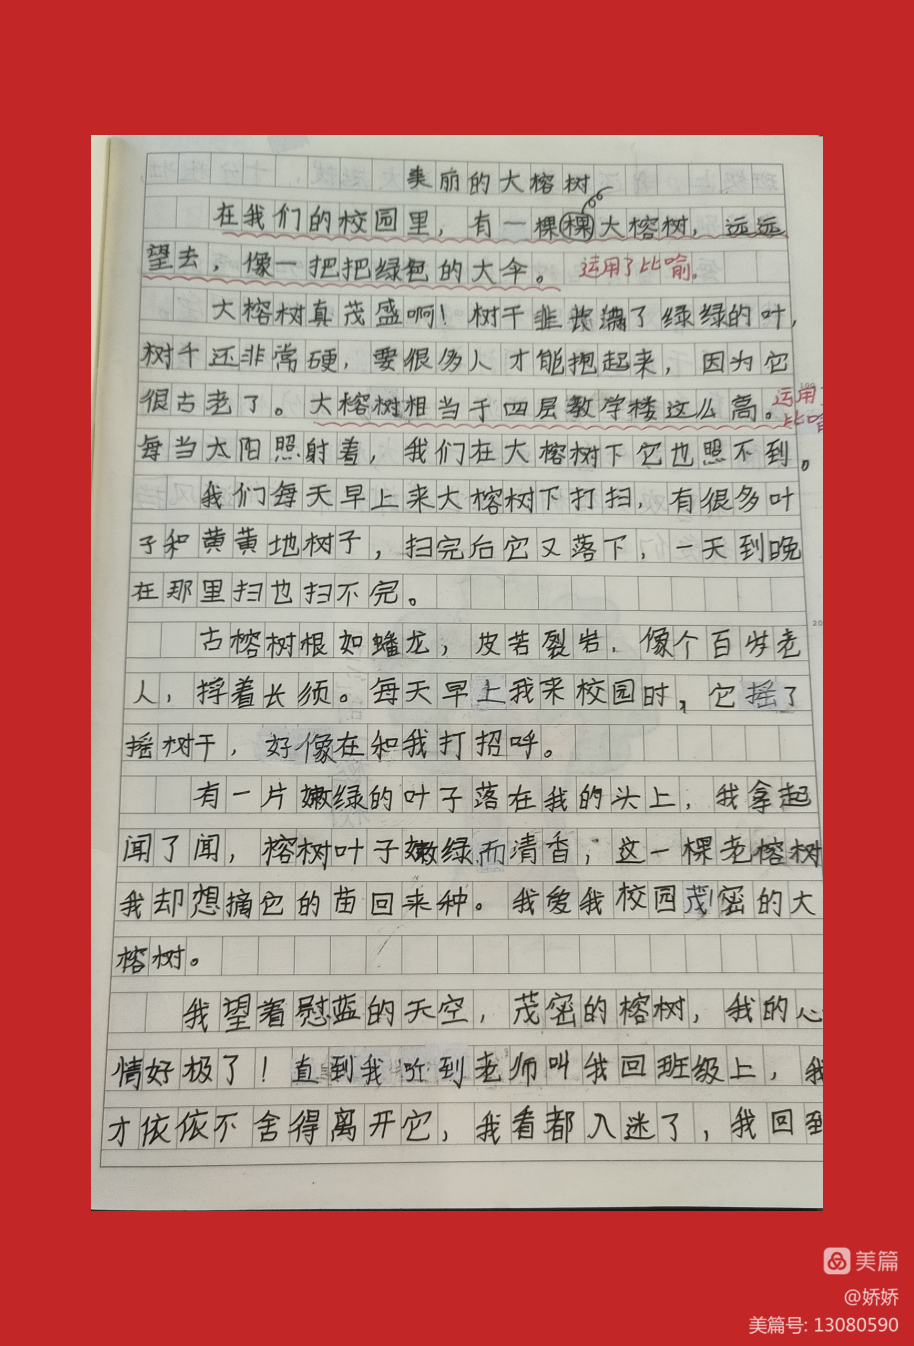 美丽的大榕树
在我们的校园里，有一棵棵大榕树，远远
望去，像一把把绿色的大伞。 运用了比喻。
大榕树真茂盛啊！树干长满了绿绿的叶，
树干还非常硬，要很多人才能抱起来，因为它
很古老了。大榕树相当于四层教学楼这么高。 运用
比喻
每当太阳照射着，我们在大榕树下它也照不到。
我们每天早上来大榕树下打扫，有很多叶
子和黄黄地树子，扫完后它又落下，一天到晚
在那里扫也扫不完。
古榕树根如蟠龙，皮若裂岩，像个百岁老
人，捋着长须。每天早上我来校园时，它摇了
摇树干，好像在和我打招呼。
有一片嫩绿的叶子落在我的头上，我拿起
闻了闻，榕树叶子嫩绿而清香，这一棵老榕树
我却想摘它的苗回来种。我爱我校园茂密的大
榕树。
我望着慰蓝的天空，茂密的榕树，我的心
情好极了！直到我听到老师叫我回班级上，我
才依依不舍得离开它，我看都入迷了，我回到
美篇
@娇娇
美篇号: 13080590